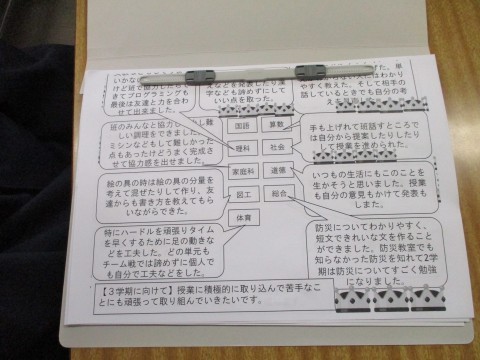 けど班で協力したら
きてプログラミングも
最後は友達と力を合わ
せて出来ました。
などを発表したり漢
字なども諦めずにして
いい点を取った。
た。単
はわかり
やすく教えた。そして相手の
話しているときでも自分の考
班のみんなと協力し
しい調理をできました。
ミシンなどもして難しかった
点もあったけどうまく完成さ
せて協力感を出せました。
国語
算数
理科
社会
家庭科
道徳
図工
総合
体育
手も上げれて班話すところで
は自分から提案したりしたり
して授業を進められた。
絵の具の時は絵の具の分量を
考えて混ぜたりして作り、友
達からも書き方を教えてもら
いながらできた。
いつもの生活にもこのことを
生かそうと思いました。授業
も自分の意見もかけて発表も
しました。
特にハードルを頑張りタイム
を早くするために足の動きな
どを工夫した。どの単元も
チーム戦では諦めずに個人で
も自分で工夫などをした。
防災についてわかりやすく、
短文できれいな文を作ること
ができました。防災教室でも
知らなかった防災を知れて2学
期は防災についてすごく勉強
になりました。
【３学期に向けて】授業に積極的に取り込んで苦手なこ
とにも頑張って取り組んでいきたいです。